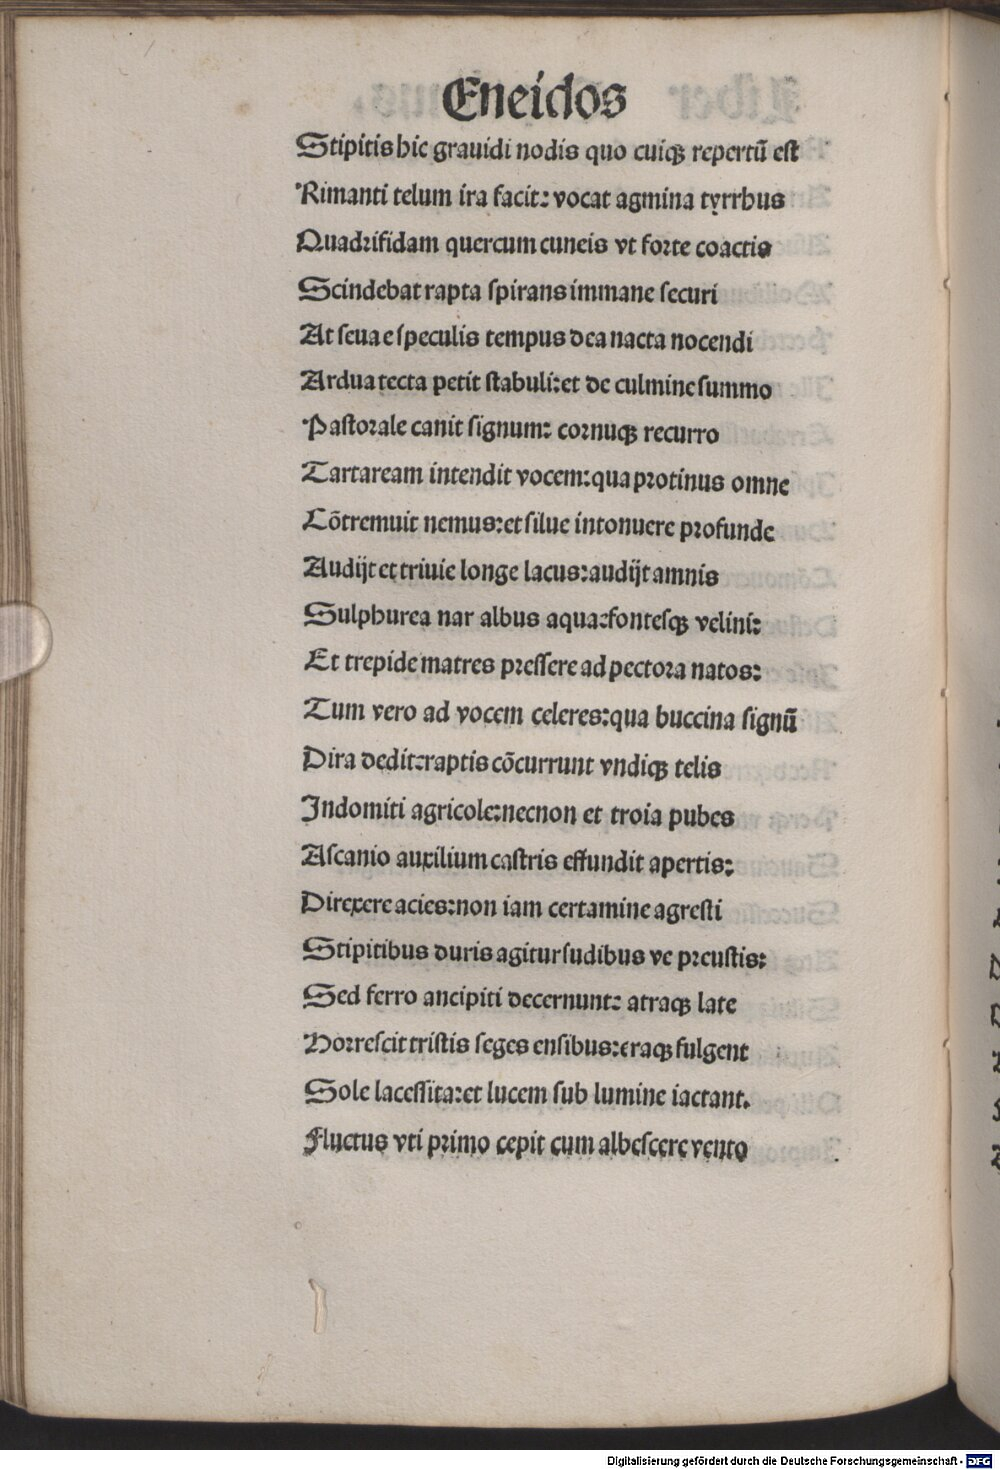 Eneidos
Stipitis hic grauidi nodis quo cuiqꝫ repertū est
Rimanti telum ira facit: vocat agmina tyrrhus
Quadrifidam quercum cuneis vt forte coactis
Scindebat rapta spirans immane securi
At seua e speculis tempus dea nacta nocendi
Ardua tecta petit stabuli: et de culmine summo
Pastorale canit signum: cornuqꝫ recurro
Tartaream intendit vocem: qua protinus omne
Cōtremuit nemus: et silue intonuere profunde
Audijt et triuie longe lacus: audijt amnis
Sulphurea nar albus aqua: fontesqꝫ velini:
Et trepide matres pressere ad pectora natos:
Tum vero ad vocem celeres: qua buccina signū
Dira dedit: raptis cōcurrunt vndiqꝫ telis
Indomiti agricole: necnon et troia pubes
Ascanio auxilium castris effundit apertis:
Direxere acies: non iam certamine agresti
Stipitibus duris agitur sudibus ve preustis:
Sed ferro ancipiti decernunt: atraqꝫ late
Horrescit tristis seges ensibus: eraqꝫ fulgent
Sole lacessita: et lucem sub lumine iactant.
Fluctus vti primo cepit cum albescere vento
Digitalisierung gefördert durch die Deutsche Forschungsgemeinschaft - DFG